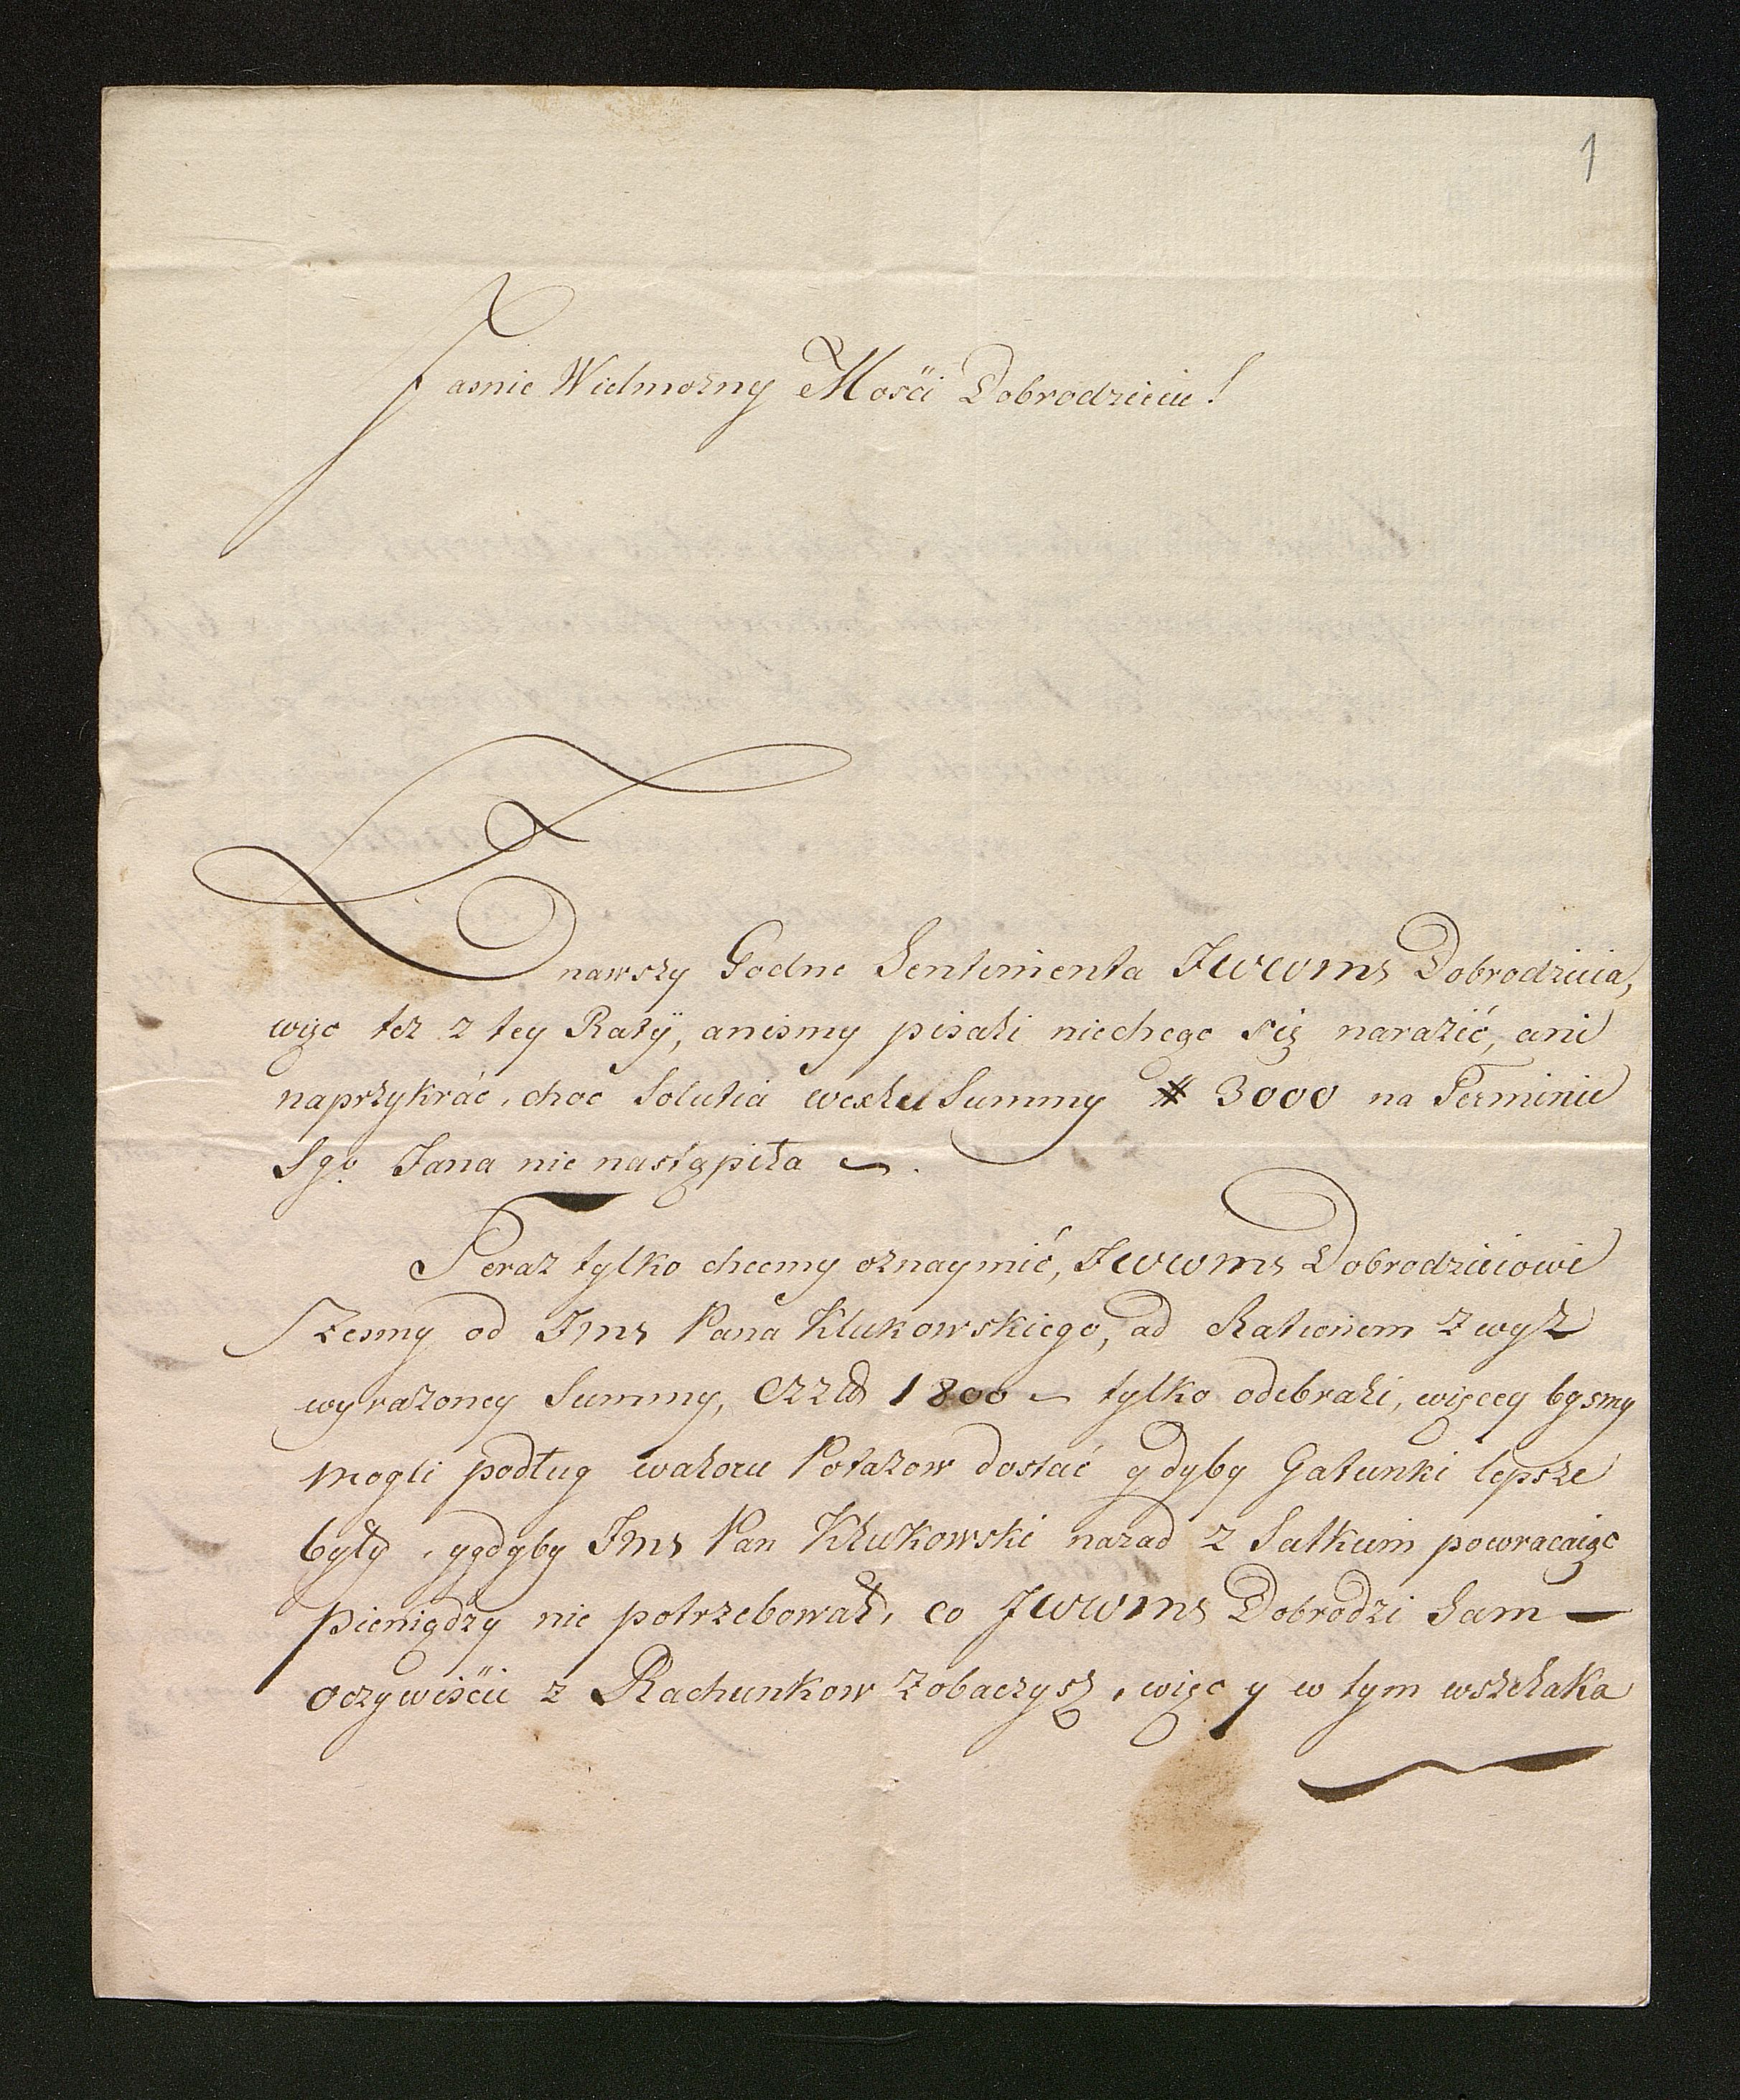 1
Jasnie Wielmozny Mosci Dobrodzieiu!
Znawszy Godne Sentimenta JWWMs Dobrodzieia,
więc tez z tey Raty, anismy pisali niechcąc się narazić, ani
naprzykrác, choc Solutia wexlu Summy # 3000 na Terminie
Sgo. Jana nie nastąpiła —.
Teraz tylko chcemy oznaymić, JWWMs Dobrodzieiowi
Żesmy od Jms Pana Klukowskiego, ad Rationem zwyż
wyrażoney Summy, Czzł 1800 – tylko odebrali, więcey bysmy
mogli podług waloru Potażow dostać gdyby Gatunki lepsze
były, ygdyby Jms Pan Klukowski nazad z Satkiem powracaiąc
pieniędzy nie potrzebował, co JWWMs Dobrodzi Sam —
oczywiscie z Rachunkow zobaczysz, więc y w tym wszelaka